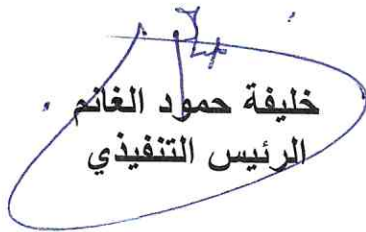 خليفة حمود الغانم
الرئيس التنفيذي